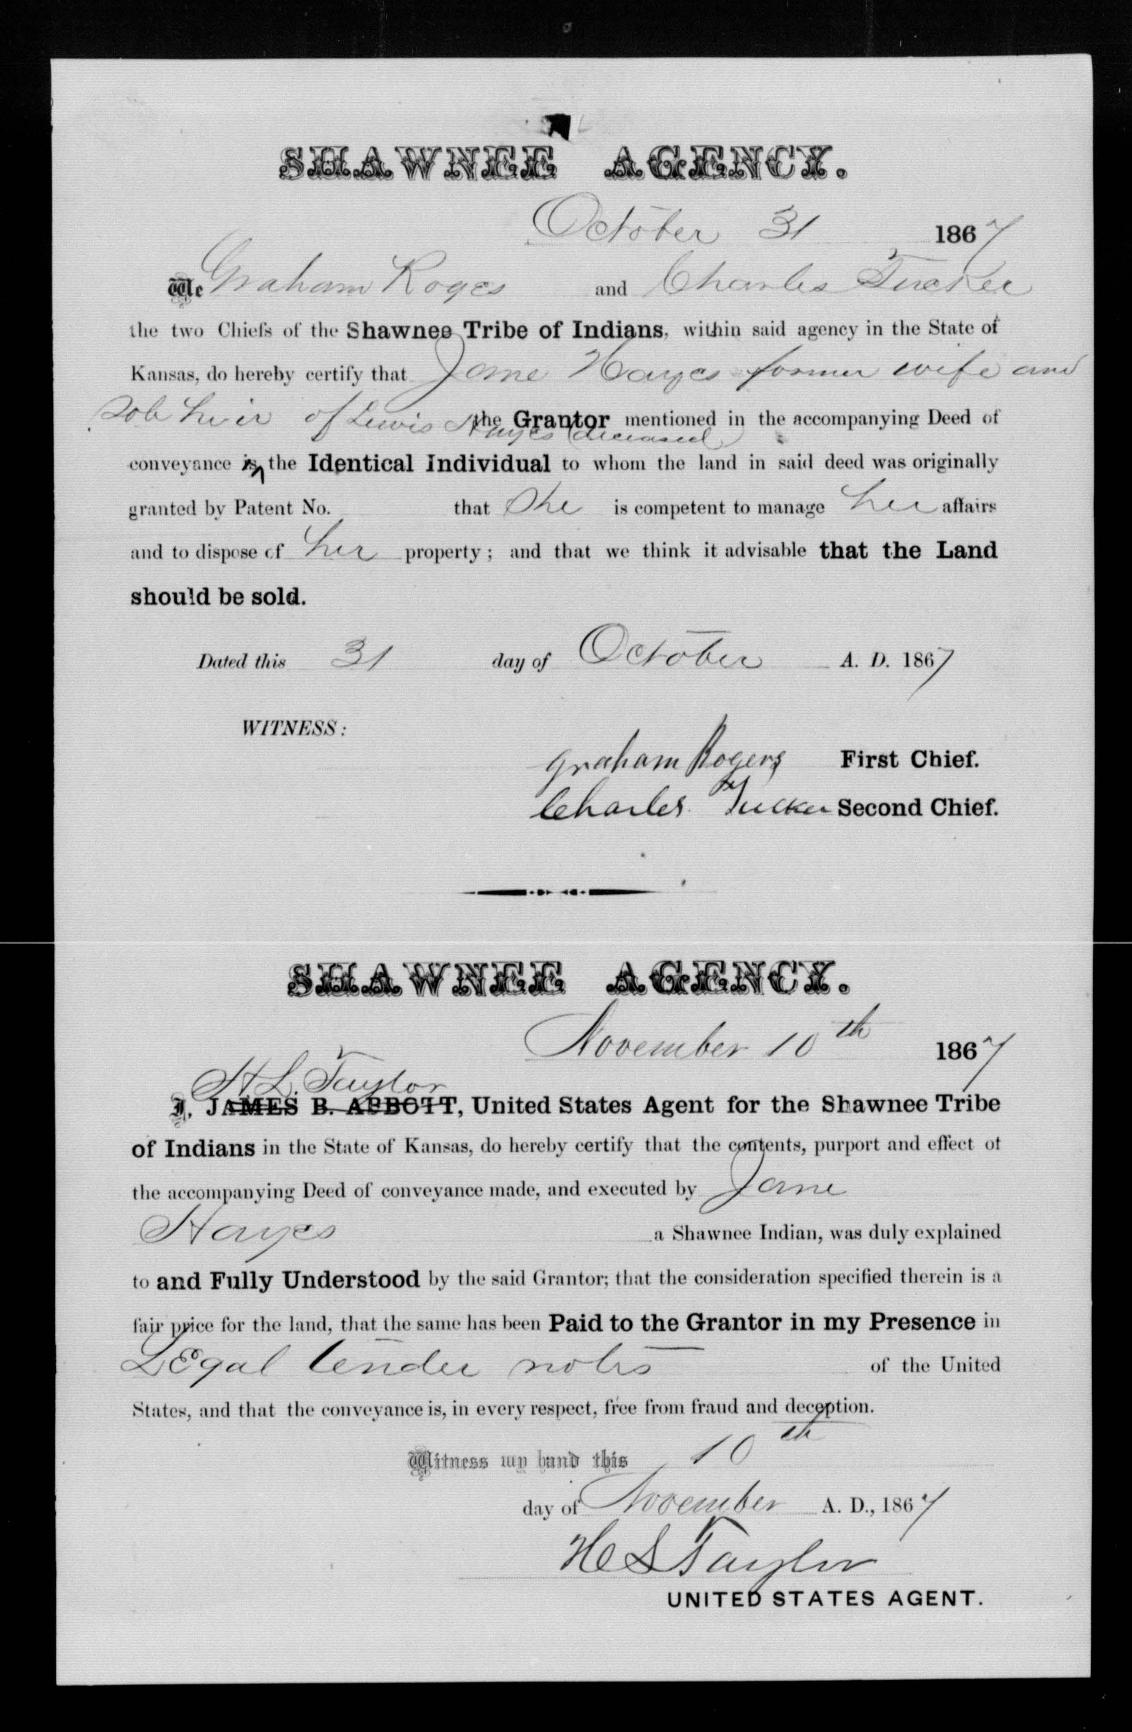 SHAWNEE AGENCY.
October 31 1867
We Graham Roges and Charles Tucker
the two Chiefs of the Shawnee Tribe of Indians, within said agency in the State of
Kansas, do hereby certify that Jane Hayes former wife and
sole heir of Lewis Hayes (deceased) the Grantor mentioned in the accompanying Deed of
conveyance is, the Identical Individual to whom the land in said deed was originally
granted by Patent No. that She is competent to manage her affairs
and to dispose of her property; and that we think it advisable that the Land
should be sold.
Dated this 31 day of October A. D. 1867
WITNESS:
Graham Rogers First Chief.
Charles Tucker Second Chief.
SHAWNEE AGENCY.
November 10th 1867
H L. Taylor
I, JAMES B. ABBOTT, United States Agent for the Shawnee Tribe
of Indians in the State of Kansas, do hereby certify that the contents, purport and effect of
the accompanying Deed of conveyance made, and executed by Jane
Hayes a Shawnee Indian, was duly explained
to and Fully Understood by the said Grantor; that the consideration specified therein is a
fair price for the land, that the same has been Paid to the Grantor in my Presence in
LEgal tender notes of the United
States, and that the conveyance is, in every respect, free from fraud and deception.
Witness my hand this 10th
day of November A. D., 1867
H L Taylor
UNITED STATES AGENT.